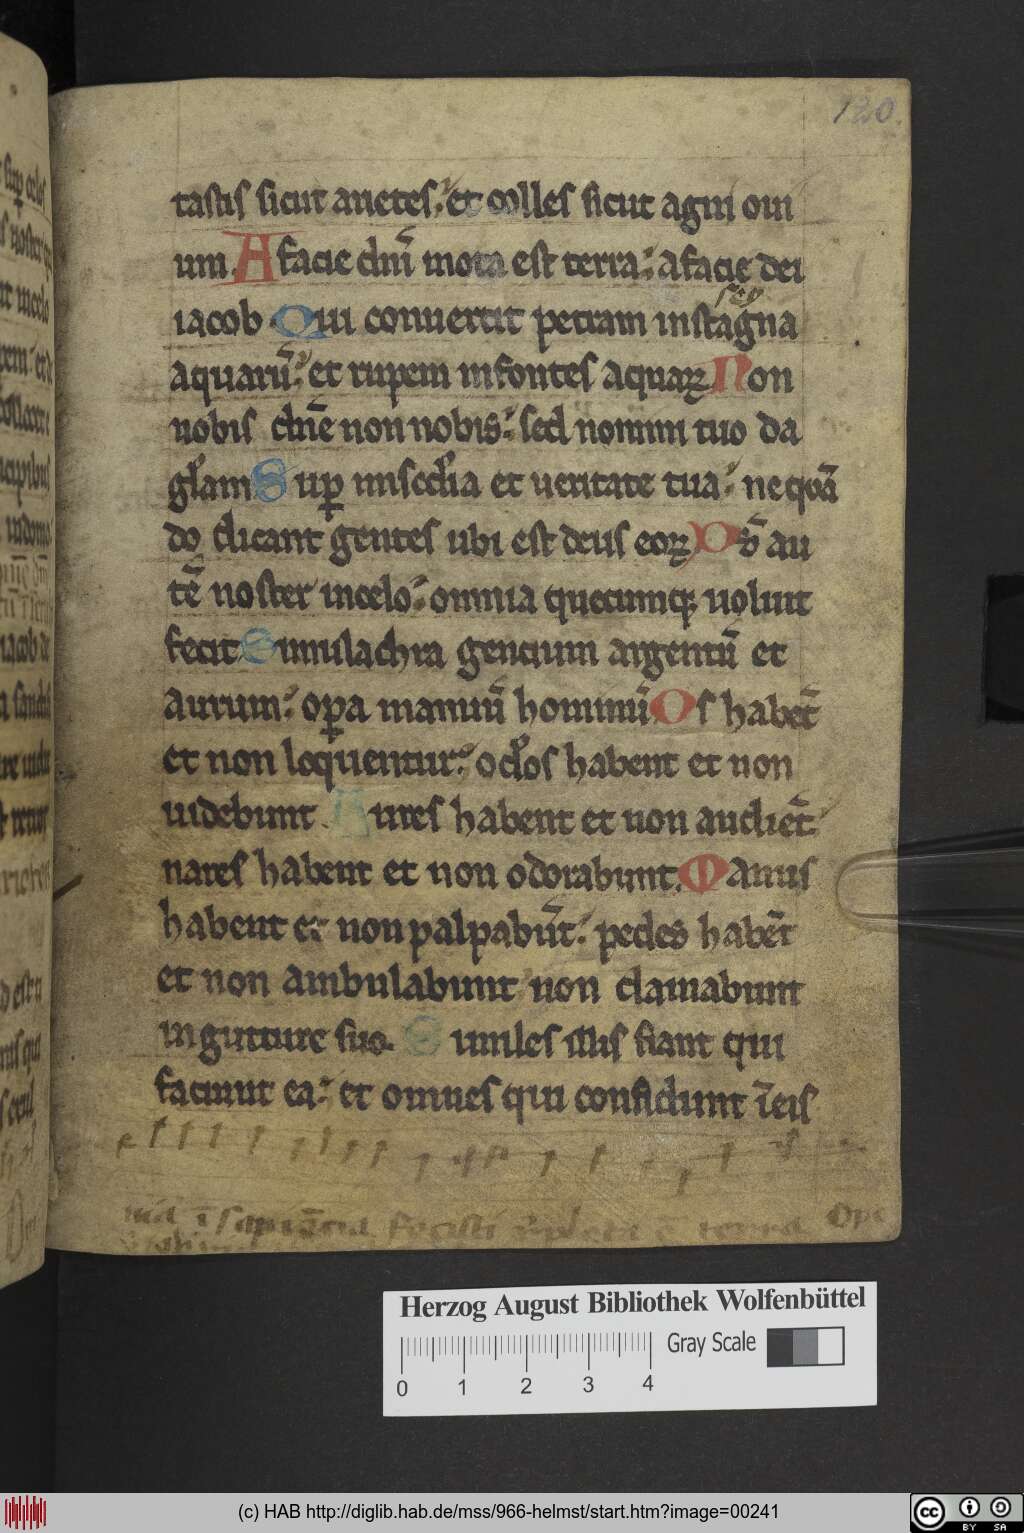 120.
tastis sicut arietes. et colles sicut agni oui
um. A facie dn̄i mota est terra. a facie dei
iacob. Qui conuertit petram in stagna
aquarū. et rupem in fontes aquaꝝ Non
nobis dn̄e non nobis. sed nomini tuo da
gl̄am Sup̱ misc̄dia et ueritate tua. ne qn̄a
do dicant gentes ubi est deus eoꝝ Ds̄ au
tē noster in celo. omnia quecumqꝫ uoluit
fecit Simulachra gentium argentū et
aurum. op̱a manuū hominū Os habēt
et non loquentur. oc̄los habent et non
uidebunt. Aures habent et non audiēt
nares habent et non odorabunt. Manus
habent et non palpabūt. pedes habēt
et non ambulabunt non clamabunt
in gutture suo. Similes illis fiant qui
faciunt ea. et omnes qui confidunt ī eis
Herzog August Bibliothek Wolfenbüttel
Gray Scale
0 1 2 3 4
(c) HAB http://diglib.hab.de/mss/966-helmst/start.htm?image=00241
cc BY SA